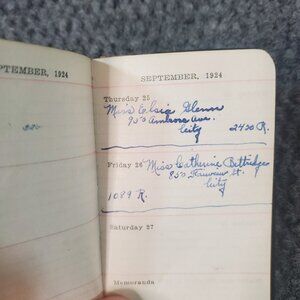 PTEMBER, 1924
SEPTEMBER, 1924
Thursday 25
Miss Elsie Glenn
955 Ambrose Ave.
City 2430 R.
Friday 26 Miss Catherine Bettridge
850 St.
City
1089 R.
Saturday 27
Memoranda